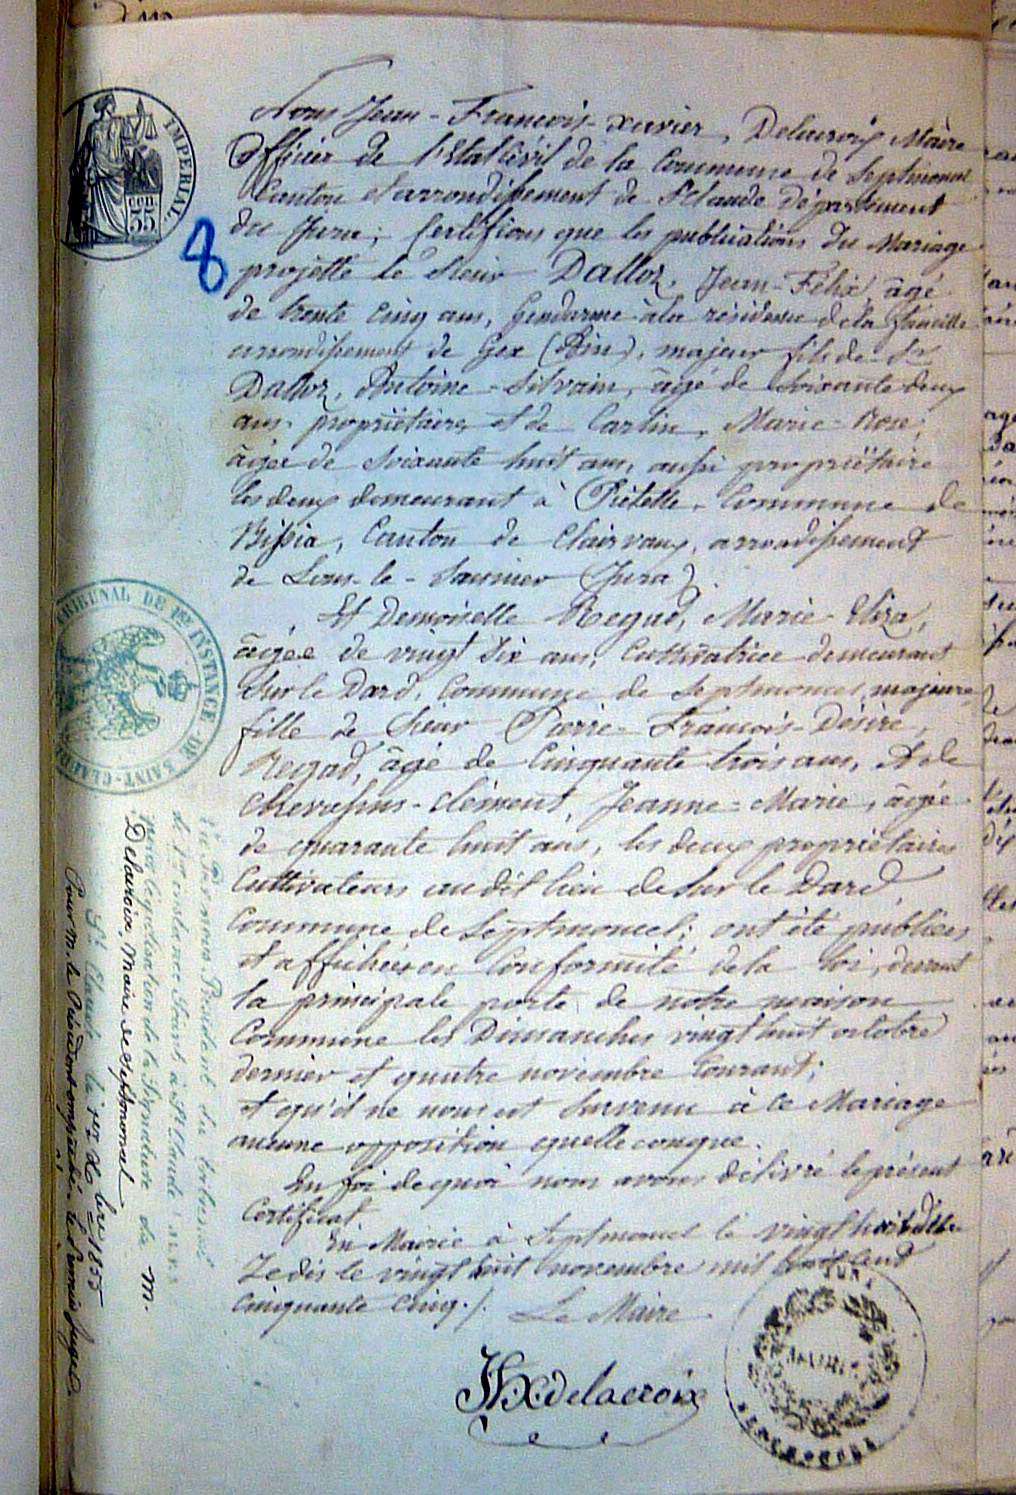 IMPERIAL.
55
8
Nous Jean-François-Xavier, Delacroix Maire
Officier de l'Etat Civil de la Commune de Septmoncel
Canton et arrondissement de St Claude Département
du Jura; Certifions que les publications du Mariage
projetté le Sieur Dalloz, Jean-Félix, âgé
de trente cinq ans, Gendarme à la résidence de la faucille
arrondissement de Gex (Ain), majeur fils de Sr
Dalloz, Antoine-Silvain, âgé de soixante deux
ans, propriétaire, et de Carlin, Marie-Rose,
âgée de soixante huit ans, aussi propriétaire
les deux demeurant à Piételle, Commune de
Bissia, Canton de Clairvaux, arrondissement
de Lons-le-Saunier (Jura).
Et Demoiselle Regad, Marie-Eliza,
âgée de vingt six ans, Cultivatrice demeurant
Sur le Dard, Commune de Septmoncel, majeure
fille de Sieur Pierre-François-Désiré,
Regad, âgé de Cinquante trois ans, Et de
Chevassus-Clément, Jeanne-Marie, âgée
de quarante huit ans, les deux propriétaires
Cultivateurs au dit lieu de Sur le Dard
Commune de Septmoncel; ont été publiées
et affichées en Conformité de la loi, devant
la principale porte de notre maison
Commune les Dimanches vingt huit octobre
dernier et quatre novembre Courant;
et qu'il ne nous est survenu à ce Mariage
aucune opposition quelle conque.
En foi de quoi nous avons délivré le présent
Certificat
En Mairie à Septmoncel le vingt huit
Je dis le vingt huit novembre mil huit cent
cinquante cinq./. Le Maire
JFX. Delacroix
JURA
MAIRIE
SEPTMONCEL
TRIBUNAL DE 1re INSTANCE DE SAINT-CLAUDE
Vu Par nous Président du tribunal
de 1re instance Séant à St Claude
pour légalisation de la Signature de M.
Delacroix, Maire de Septmoncel
St Claude le 1er Xbre 1855
Pour M. le Président empêché, le Premier Juge